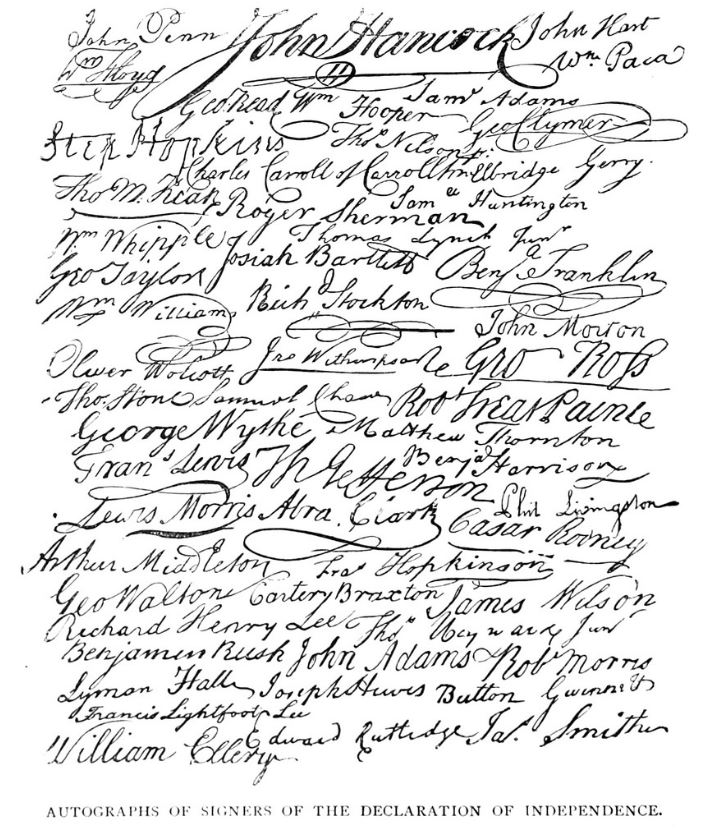 John Penn John Hancock John Hart
Wm Floyd Wm Paca
Geo Read Wm Hooper Saml Adams
Step Hopkins Thos Nelson jr. Geo Clymer
Charles Carroll of Carrollton Elbridge Gerry.
Tho M. Kean Roger Sherman Saml Huntington
Wm Whipple Josiah Bartlett Thomas Lynch Junr
Geo Taylor Benja Franklin
Wm Williams Richd Stockton
John Morton
Oliver Wolcott Jno Witherspoon Geo Ross
Thos. Stone Samuel Chase Robt Treat Paine
George Wythe Matthew Thornton
Frans Lewis Th Jefferson Benja Harrison
Lewis Morris Abra. Clark Phil Livingston
Cæsar Rodney
Arthur Middleton Fras Hopkinson
Geo Walton Carter Braxton James Wilson
Richard Henry Lee Thos Heyward Junr
Benjamin Rush John Adams Robt Morris
Lyman Hall Joseph Hewes Button Gwinnett
Francis Lightfoot Lee
William Ellery Edward Rutledge Jas. Smith
AUTOGRAPHS OF SIGNERS OF THE DECLARATION OF INDEPENDENCE.